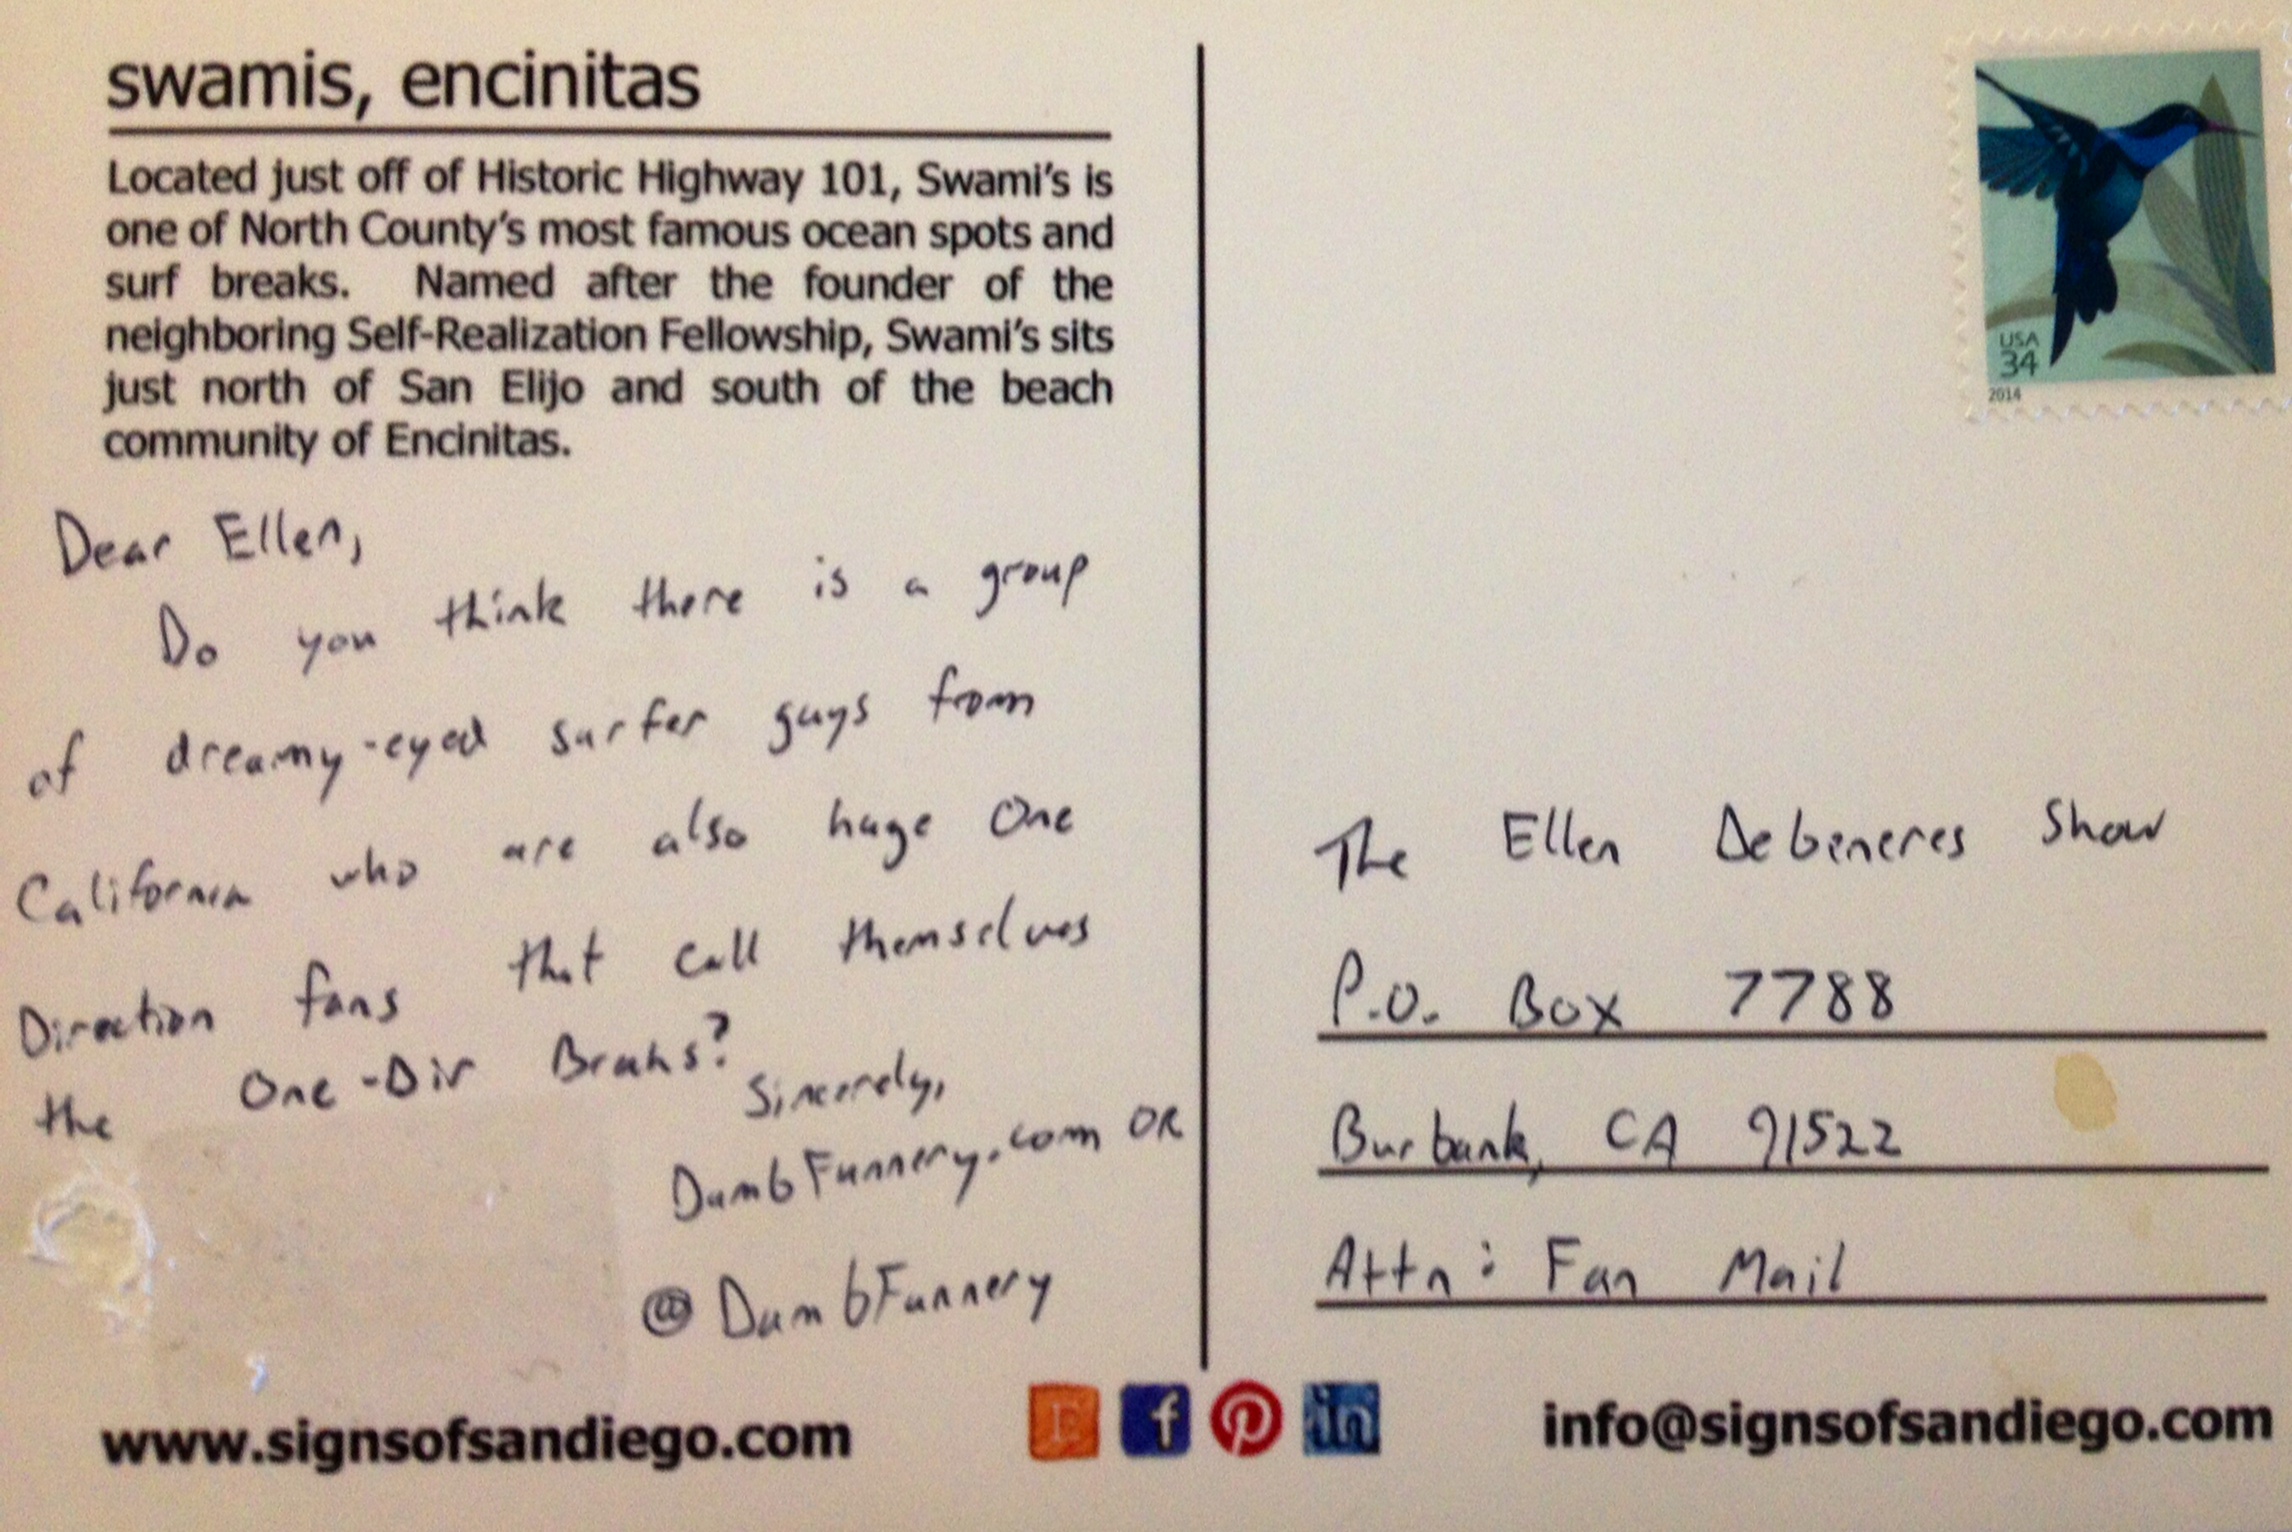 swamis, encinitas
Located just off of Historic Highway 101, Swami's is
one of North County's most famous ocean spots and
surf breaks. Named after the founder of the
neighboring Self-Realization Fellowship, Swami's sits
just north of San Elijo and south of the beach
community of Encinitas.
Dear Ellen,
Do you think there is a group
of dreamy-eyed surfer guys from
California who are also huge One
Direction fans that call themselves
the One-Dir Brahs?
Sincerely,
DumbFunnery.com OR
@DumbFunnery
USA
34
2014
The Ellen Debeneres Show
P.O. Box 7788
Burbank, CA 91522
Attn: Fan Mail
www.signsofsandiego.com
E f p in
info@signsofsandiego.com